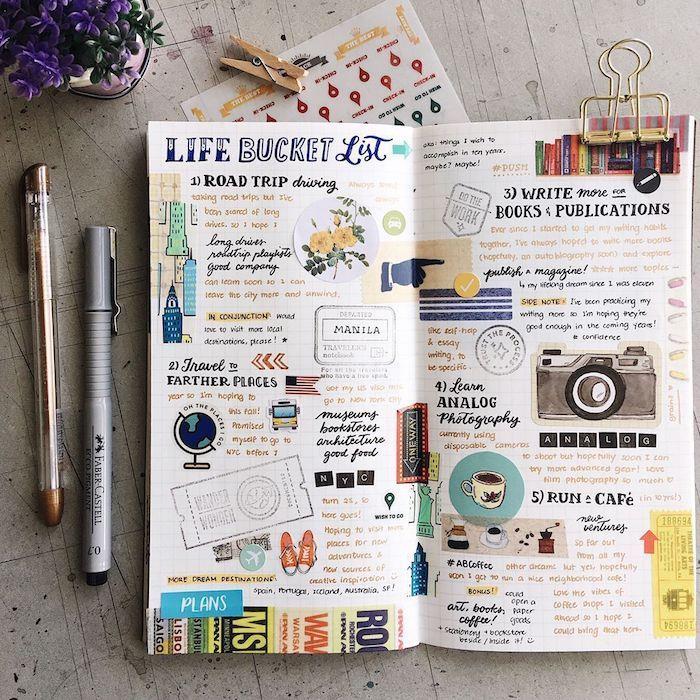 LIFE BUCKET List
1) ROAD TRIP driving
Always loved
taking road trips but I've always
been scared of long
drives, so I hope I
long drives
roadtrip playlists
good company
can learn soon so I can
leave the city more and unwind.
IN CONJUNCTION: would
love to visit more local
destinations, please! *
DEPARTED
MANILA
TRAVELER'S
notebook
For all the travelers
who have a free spirit
2) Travel to
FARTHER PLACES
Got my US visa this
year so I'm hoping to
go to New York City
this fall!
Promised
myself to go to
NYC before I
OH THE PLACES I'LL GO
museums
bookstores
architecture
good food
NYC
WANDER
WOMEN
turn 25, so
here goes!
WISH TO GO
Hoping to visit more
places for new
adventures &
new sources of
creative inspiration
MORE DREAM DESTINATIONS:
Spain, Portugal, Iceland, Australia, SF!
PLANS
LISBO
ISTANBUL
WARSA
ROCHESTER
THE BEST
CHECK-IN
WISH TO GO
aka: things I wish to
accomplish in ten years,
maybe? Maybe!
#PUSH
DO THE
WORK
3) WRITE more FOR
BOOKS & PUBLICATIONS
Ever since I started to get my writing habits
together, I've always hoped to write more books
(hopefully, an autobiography soon) and explore
publish a magazine!
more topics
my lifelong dream since I was eleven
like self-help
& essay
writing, to
be specific.
TRUST THE PROCESS
SIDE NOTE: I've been practicing
my writing more so I'm hoping they're
good enough in the coming years!
# confidence
4) Learn
ANALOG
Photography
ONEWAY
ANALOG
currently using
disposable cameras
to shoot but hopefully soon I can
try more advanced gear! Love
film photography so much
grains
5) RUN A CAFÉ (in 10 yrs!)
new
ventures
so far out
from all my
#ABCoffee other dreams but yes, hopefully
soon I get to run a nice neighborhood café!
BONUS!
art, books,
coffee!
could
open a
paper
goods
+ stationery + bookstore
beside / inside it!
Love the vibes of
coffee shops I visited
abroad so I hope I
could bring that here.
198881
198694
FABER-CASTELL
0.7